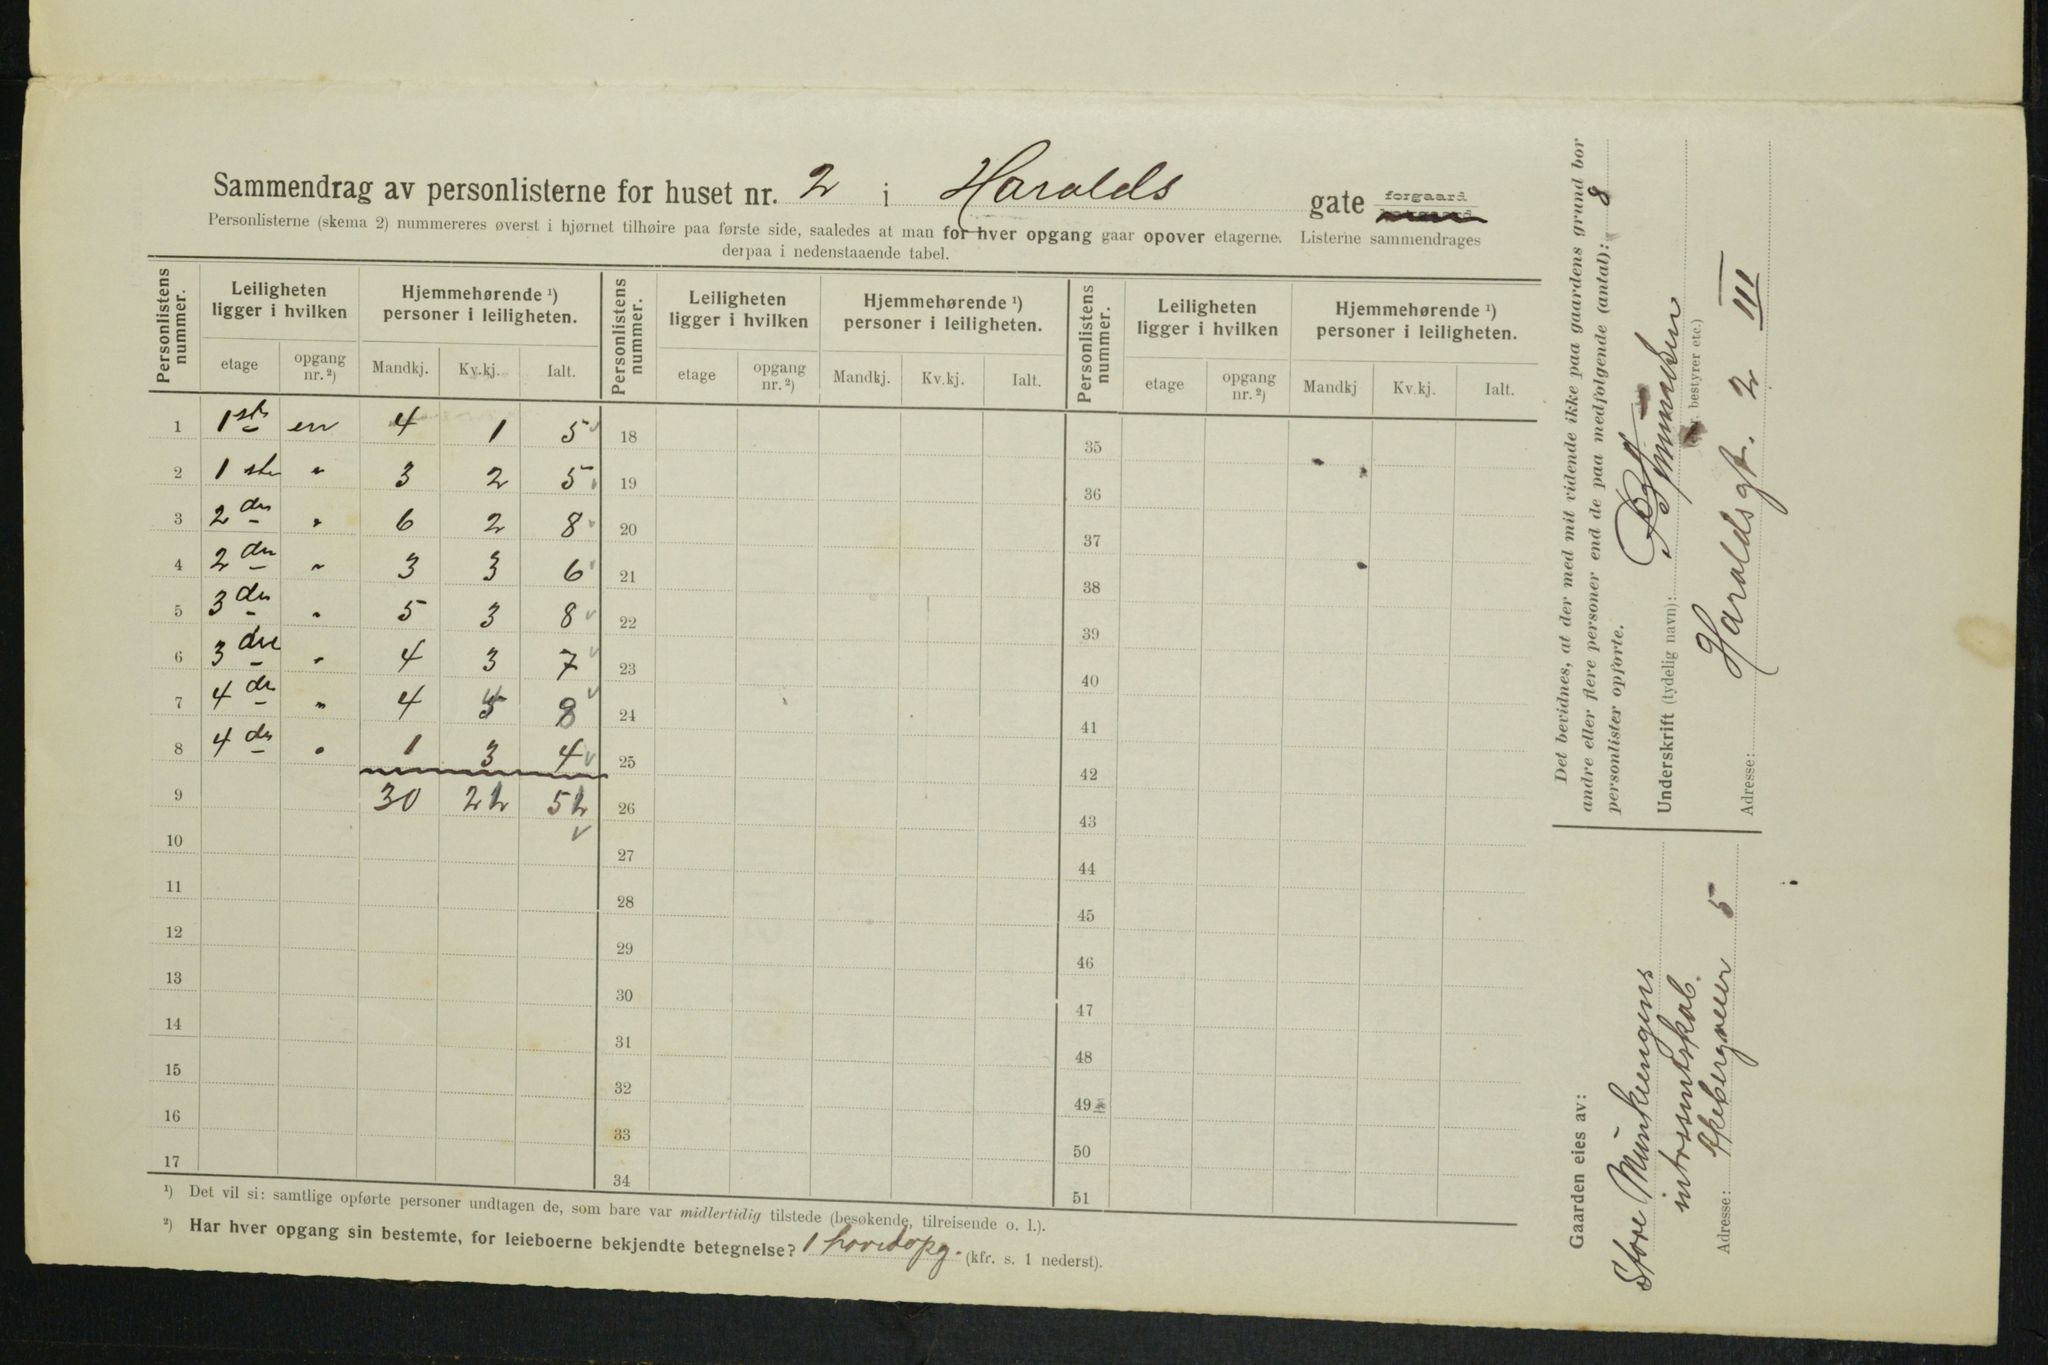 Sammendrag av personlisterne for huset nr. 2 i Haralds gate forgaard
Personlisterne (skema 2) nummereres øverst i hjørnet tilhøire paa første side, saaledes at man for hver opgang gaar opover etagerne. Listerne sammendrages
derpaa i nedenstaaende tabel.
Personlistens nummer. Leiligheten ligger i hvilken Hjemmehørende ¹) personer i leiligheten. Personlistens nummer. Leiligheten ligger i hvilken Hjemmehørende ¹) personer i leiligheten. Personlistens nummer. Leiligheten ligger i hvilken Hjemmehørende ¹) personer i leiligheten.
etage opgang nr. ²) Mandkj. Kv.kj. Ialt. etage opgang nr. ²) Mandkj. Kv.kj. Ialt. etage opgang nr. ²) Mandkj Kv.kj. Ialt.
1 1ste en 4 1 5 18 35
2 1 ste " 3 2 5 19 36
3 2den " 6 2 8 20 37
4 2den " 3 3 6 21 38
5 3die " 5 3 8 22 39
6 3die " 4 3 7 23 40
7 4de " 4 8 24 41
8 4de " 1 3 4 25 42
9 30 26 43
10 27 44
11 28 45
12 29 46
13 30 47
14 31 48
15 32 49
16 33 50
17 34 51
¹) Det vil si: samtlige opførte personer undtagen de, som bare var midlertidig tilstede (besøkende, tilreisende o. l.).
²) Har hver opgang sin bestemte, for leieboerne bekjendte betegnelse? 1 hovedopg. (kfr. s. 1 nederst).
Det bevidnes, at der med mit vidende ikke paa gaardens grund bor
andre eller flere personer end de paa medfølgende (antal): 8
personlister opførte.
Underskrift (tydelig navn):
bestyrer etc.)
Adresse: Haralds gt. 2 III
Gaarden eies av:
Store Munkeengens
intresentskab.
Adresse: Ekebergveien 5